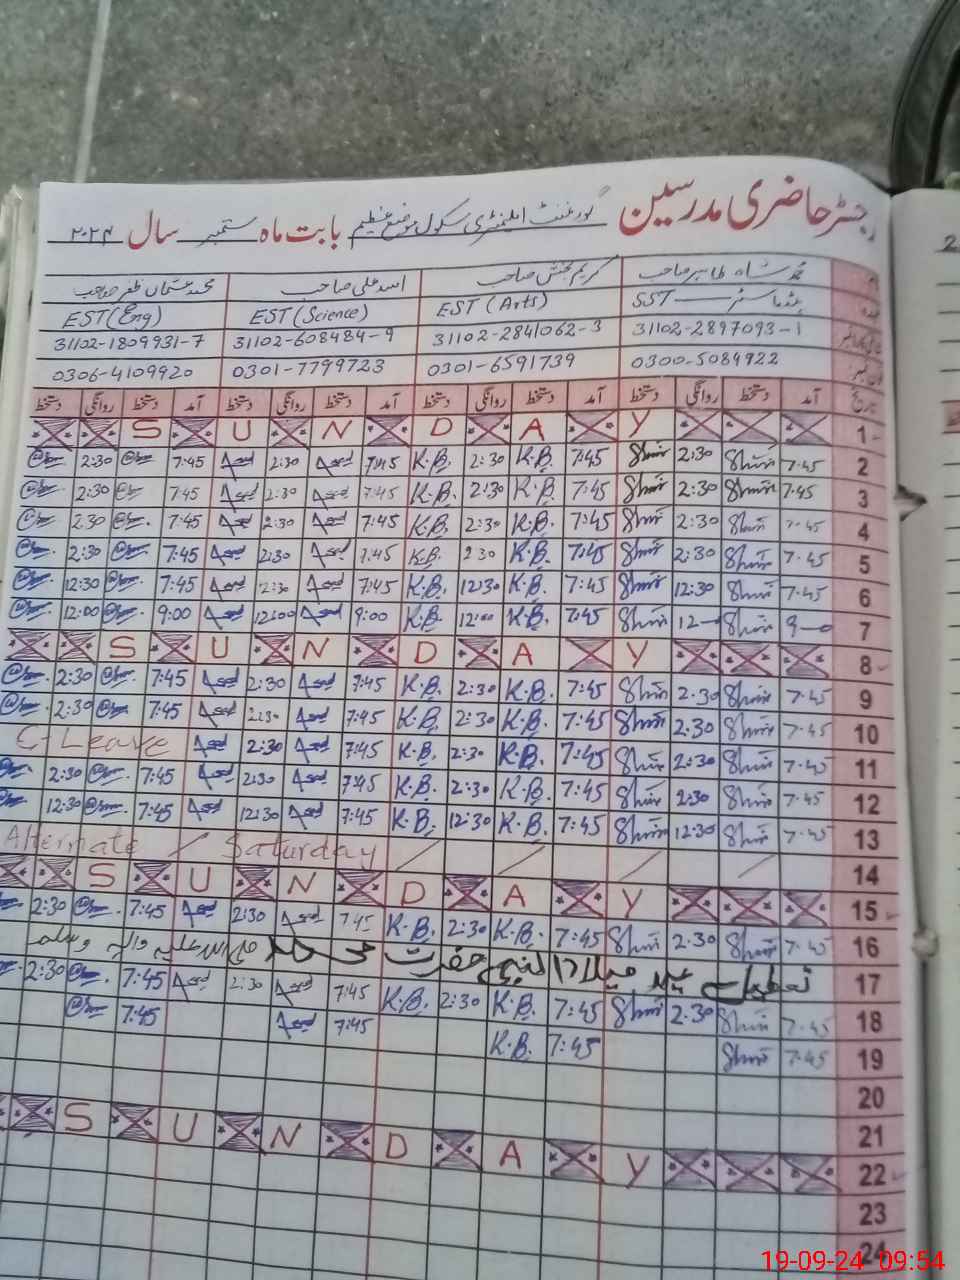 رجسٹر حاضری مدرسین گورنمنٹ ایلیمنٹری سکول موضع عظیم بابت ماہ ستمبر سال ۲۰۲۴
محمد شاہ طاہر صاحب کریم بخش صاحب اسد علی صاحب محمد عثمان ظفر صاحب
ہیڈ ماسٹر SST EST (Arts) EST (Science) EST (Eng)
31102-2897093-1 31102-2841062-3 31102-608484-9 31102-1809931-7
0300-5084922 0301-6591739 0301-7799723 0306-4109920
تاریخ آمد دستخط روانگی دستخط آمد دستخط روانگی دستخط آمد دستخط روانگی دستخط آمد دستخط روانگی دستخط
S U N D A Y 1
2:30 7:45 Asad 2:30 Asad 7:45 K.B. 2:30 K.B. 7:45 2:30 7:45 2
2:30 7:45 Asad 2:30 Asad 7:45 K.B. 2:30 K.B. 7:45 2:30 7:45 3
2:30 7:45 Asad 2:30 Asad 7:45 K.B. 2:30 K.B. 7:45 2:30 7:45 4
2:30 7:45 Asad 2:30 Asad 7:45 K.B. 2:30 K.B. 7:45 2:30 7:45 5
12:30 7:45 Asad 12:30 Asad 7:45 K.B. 12:30 K.B. 7:45 12:30 7:45 6
12:00 9:00 Asad 12:00 Asad 9:00 K.B. 12:00 K.B. 7:45 12-0 9-0 7
S U N D A Y 8
2:30 7:45 Asad 2:30 Asad 7:45 K.B. 2:30 K.B. 7:45 2:30 7:45 9
2:30 7:45 Asad 2:30 Asad 7:45 K.B. 2:30 K.B. 7:45 2:30 7:45 10
C-Leave Asad 2:30 Asad 7:45 K.B. 2:30 K.B. 7:45 2:30 7:45 11
2:30 7:45 Asad 2:30 Asad 7:45 K.B. 2:30 K.B. 7:45 2:30 7:45 12
12:30 7:45 Asad 12:30 Asad 7:45 K.B. 12:30 K.B. 7:45 12:30 7:45 13
Alternate / Saturday / / / / 14
S U N D A Y 15
2:30 7:45 Asad 2:30 Asad 7:45 K.B. 2:30 K.B. 7:45 2:30 7:45 16
تعطیل عید میلاد النبی حضرت محمد صلی اللہ علیہ والہ وسلم 17
2:30 7:45 Asad 2:30 Asad 7:45 K.B. 2:30 K.B. 7:45 2:30 7:45 18
7:45 Asad 7:45 K.B. 7:45 7:45 19
20
21
S U N D A Y 22
23
24
19-09-24 09:54